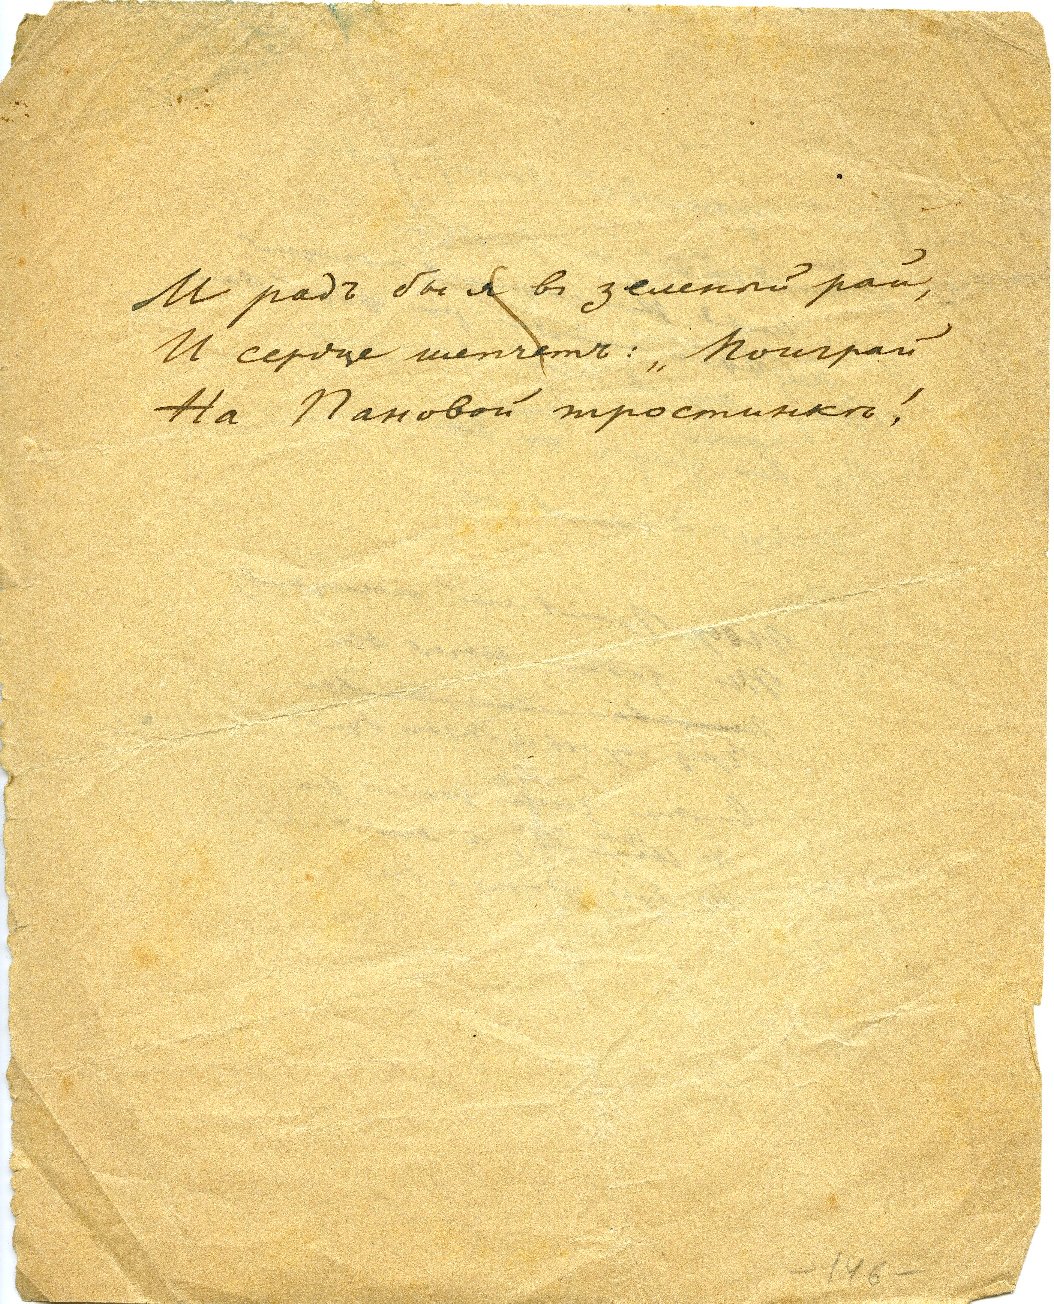 И радъ бы я въ зеленый рай,
И сердце шепчетъ: „Поиграй
На Пановой тростинкѣ!
— 146 —